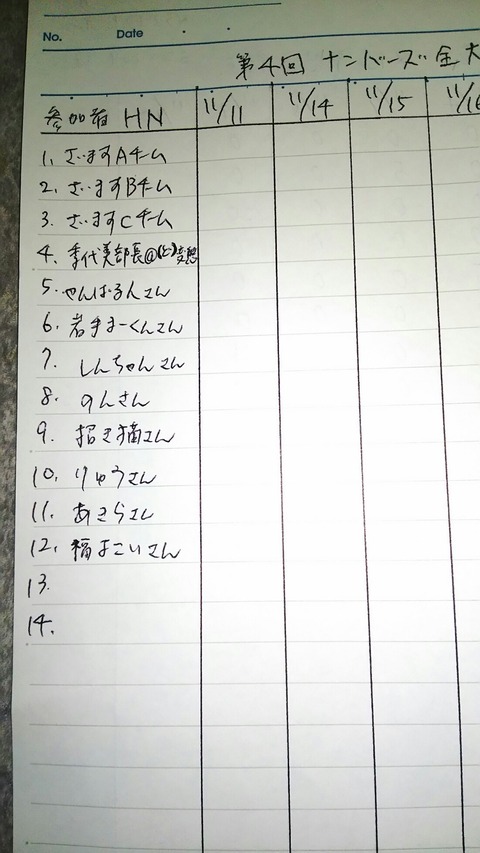 No. Date
第4回 ナンバーズ 全
参加者 HN 11/11 11/14 11/15 11/16
1. ざ・ますAチーム
2. ざ・ますBチーム
3. ざ・ますCチーム
4. 季代美部長@
5. やんばる人さん
6. 岩手まーくんさん
7. しんちゃんさん
8. のんさん
9. 招き猫さん
10. りゅうさん
11. あきらさん
12. 福よこいさん
13.
14.